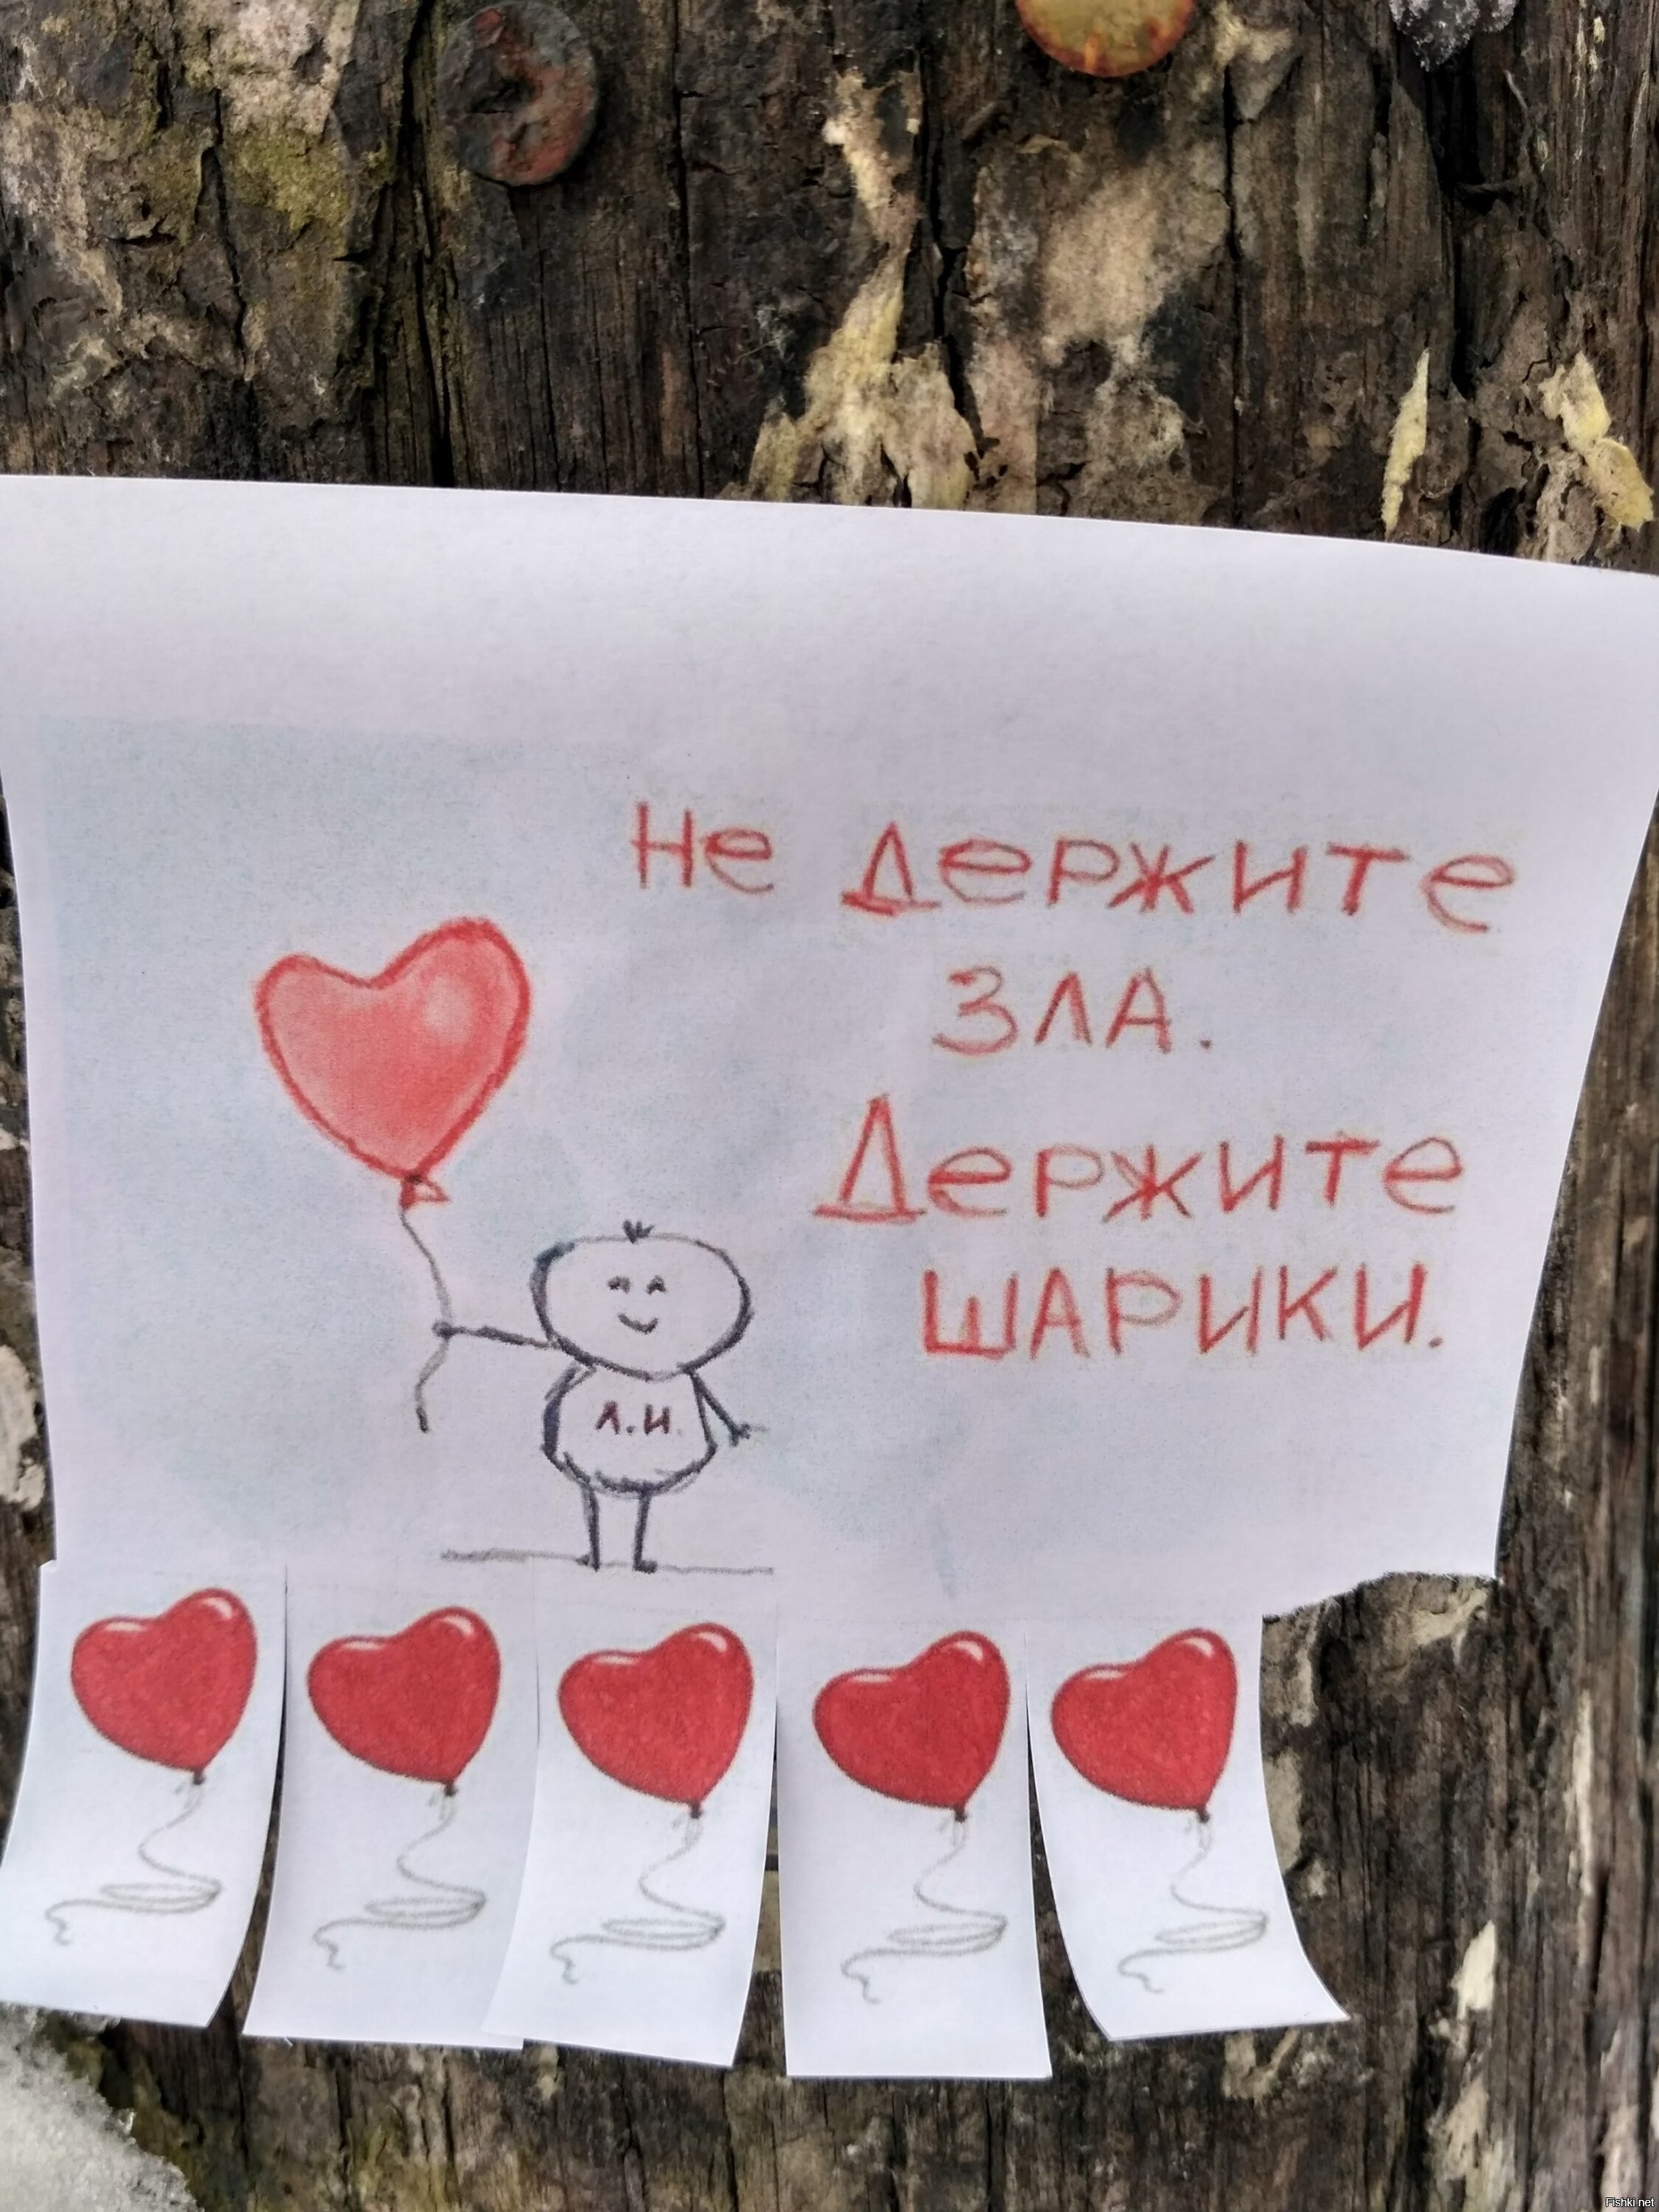 Не держите
зла.
Держите
шарики.
Л.И.
Fishki net